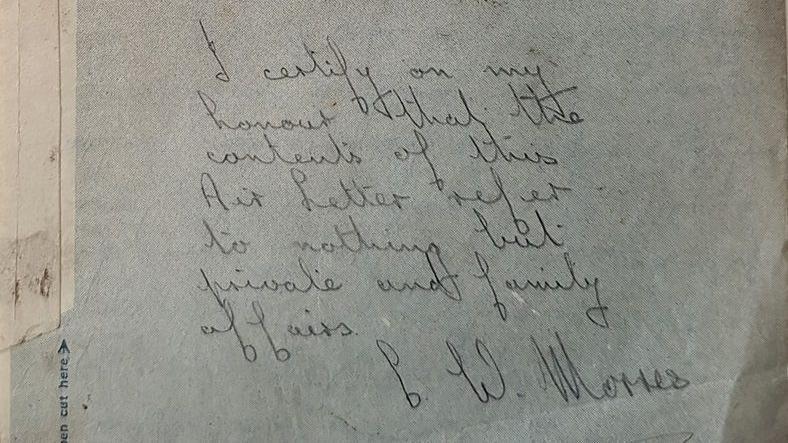 I certify on my
honour that the
contents of this
Air Letter refer
to nothing but
private and family
affairs.
W. Morres
pen cut here